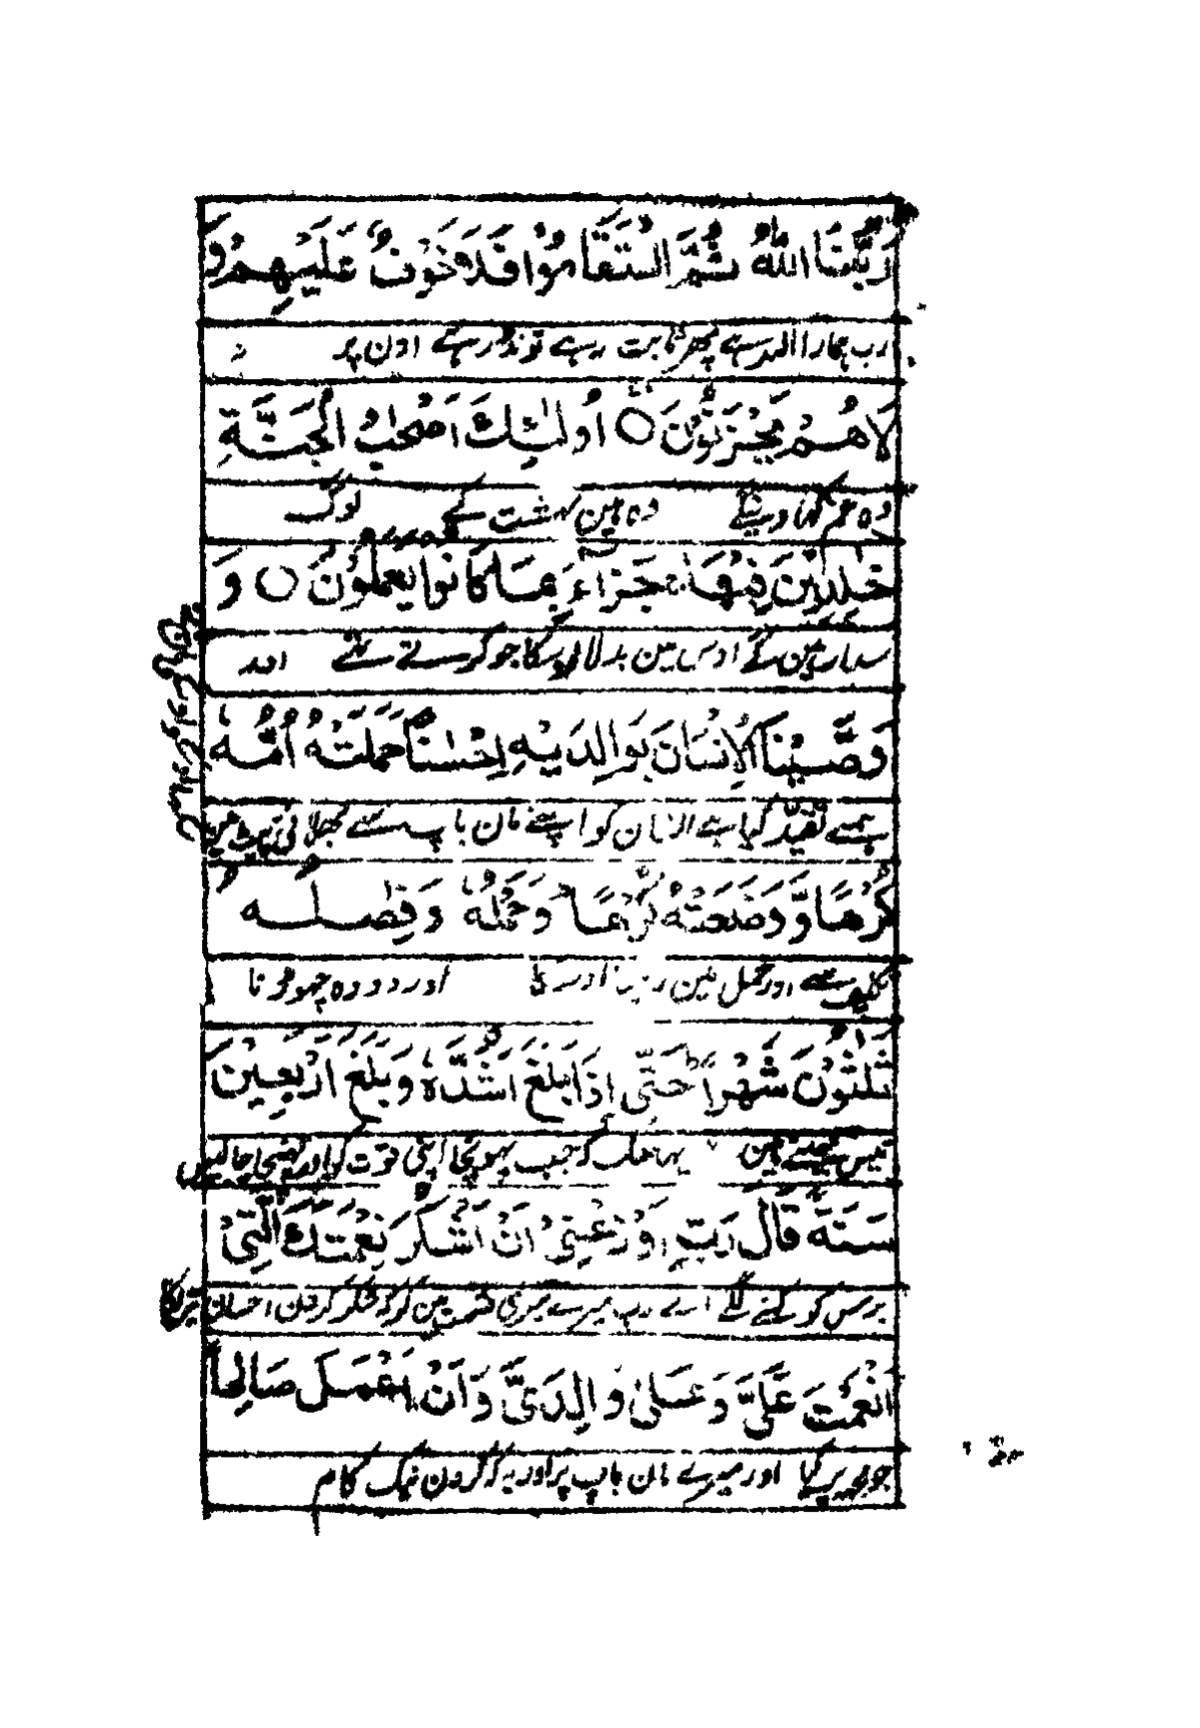 رَبُّنَا اللّٰهُ ثُمَّ اسْتَقَامُوْا فَلَا خَوْفٌ عَلَيْهِمْ وَ
رب ہمارا اللہ ہے پھر ثابت رہے تو نہ ڈر ہے اون پر
لَا هُمْ يَحْزَنُوْنَ ۝ اُولٰٓئِكَ اَصْحٰبُ الْجَنَّةِ
وہ غم کھاوینگے وہ ہین بہشت کے لوگ
خٰلِدِيْنَ فِيْهَا ۚ جَزَآءً بِمَا كَانُوْا يَعْمَلُوْنَ ۝ وَ
سدا رہین گے اوس مین بدلا اوسکا جو کرتے تھے اور
وَصَّيْنَا الْاِنْسَانَ بِوَالِدَيْهِ اِحْسٰنًا حَمَلَتْهُ اُمُّهٗ
ہمنے تقید کیا ہے انسان کو اپنے مان باپ سے بھلائی پیٹ مین
كُرْهًا وَّ وَضَعَتْهُ كُرْهًا وَحَمْلُهٗ وَفِصٰلُهٗ
تکلیف سے اور حمل مین اور دودہ چھوڑنا
ثَلٰثُوْنَ شَهْرًا حَتّٰى اِذَا بَلَغَ اَشُدَّهٗ وَبَلَغَ اَرْبَعِيْنَ
تیس مہینے ہین یہانتک کہ جب پہونچا اپنی قوت کو اور پہنچا چالیس
سَنَةً قَالَ رَبِّ اَوْزِعْنِيْ اَنْ اَشْكُرَ نِعْمَتَكَ الَّتِيْ
برس کو کہنے لگا اے رب میرے میری قسمت مین کر کہ شکر کرون احسان تیرے کا
اَنْعَمْتَ عَلَيَّ وَعَلٰى وَالِدَيَّ وَاَنْ اَعْمَلَ صَالِحًا
جو مجھ پر کیا اور میرے مان باپ پر اور یہ کہ کرون نیک کام